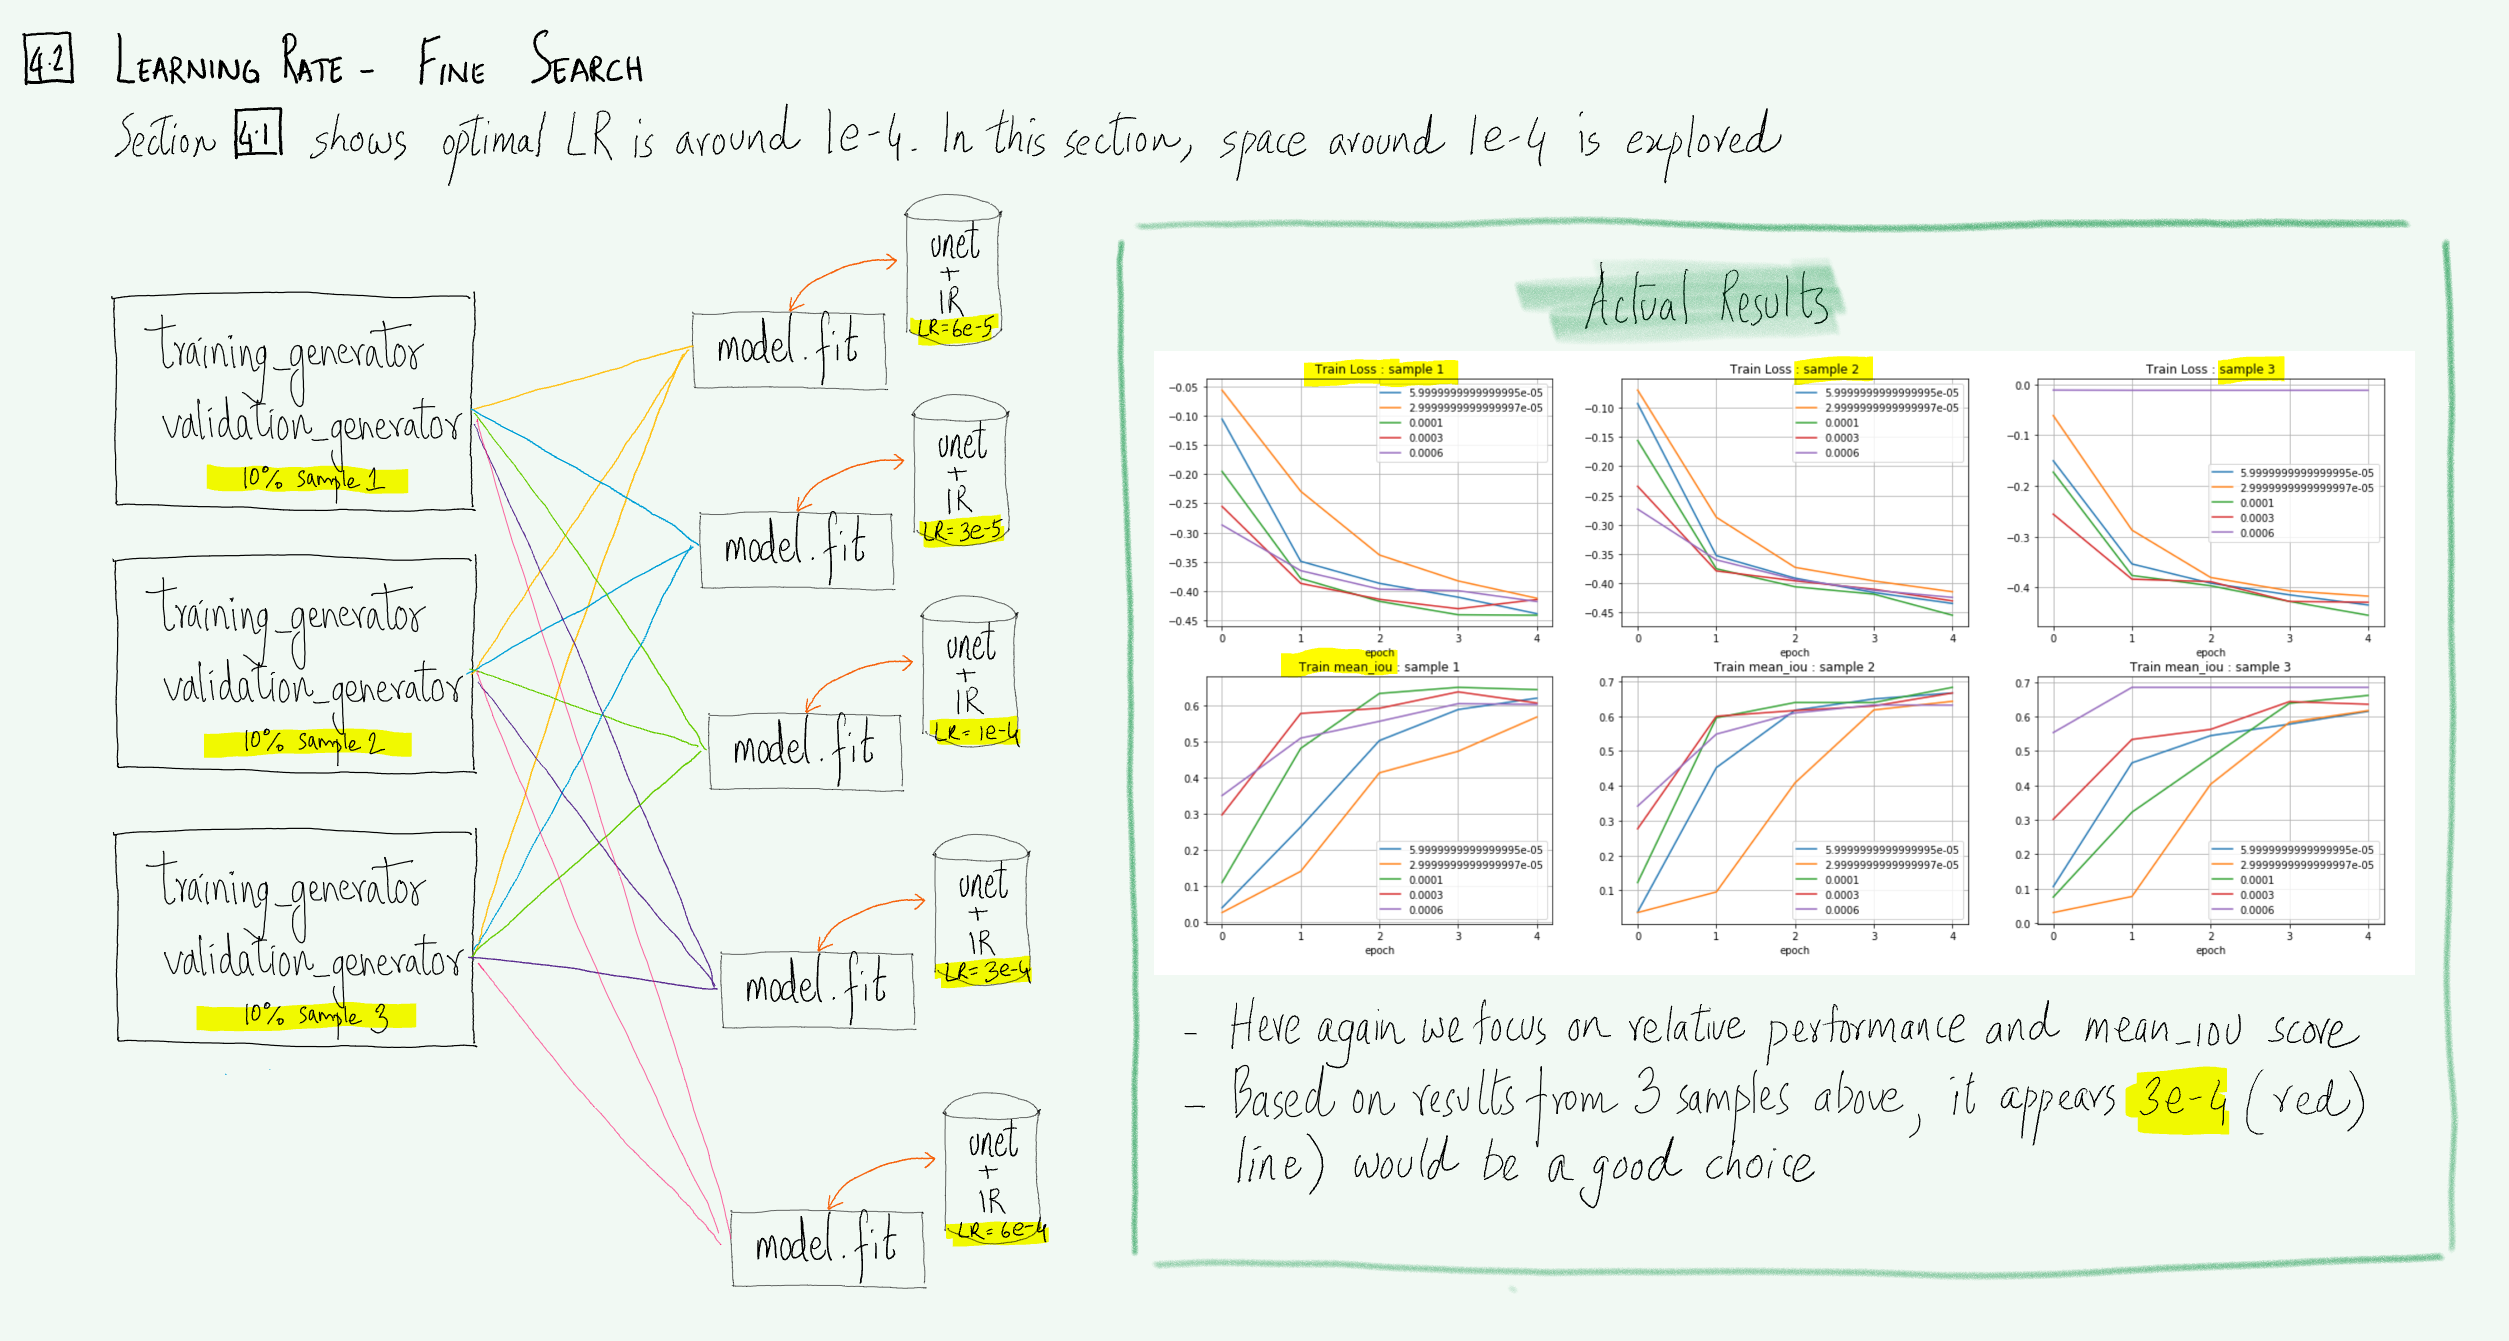 4.2 LEARNING RATE - FINE SEARCH
Section 4.1 shows optimal LR is around 1e-4. In this section, space around 1e-4 is explored
training_generator
validation_generator
10% sample 1
training_generator
validation_generator
10% sample 2
training_generator
validation_generator
10% sample 3
model.fit
unet
+
IR
LR=6e-5
model.fit
unet
+
IR
LR=3e-5
model.fit
unet
+
IR
LR=1e-4
model.fit
unet
+
IR
LR=3e-4
model.fit
unet
+
IR
LR=6e-4
Actual Results
Train Loss : sample 1
−0.05
−0.10
−0.15
−0.20
−0.25
−0.30
−0.35
−0.40
−0.45
5.9999999999999995e-05
2.9999999999999997e-05
0.0001
0.0003
0.0006
0 1 2 3 4
epoch
Train Loss : sample 2
−0.10
−0.15
−0.20
−0.25
−0.30
−0.35
−0.40
−0.45
5.9999999999999995e-05
2.9999999999999997e-05
0.0001
0.0003
0.0006
0 1 2 3 4
epoch
Train Loss : sample 3
0.0
−0.1
−0.2
−0.3
−0.4
5.9999999999999995e-05
2.9999999999999997e-05
0.0001
0.0003
0.0006
0 1 2 3 4
epoch
Train mean_iou : sample 1
0.6
0.5
0.4
0.3
0.2
0.1
0.0
5.9999999999999995e-05
2.9999999999999997e-05
0.0001
0.0003
0.0006
0 1 2 3 4
epoch
Train mean_iou : sample 2
0.7
0.6
0.5
0.4
0.3
0.2
0.1
5.9999999999999995e-05
2.9999999999999997e-05
0.0001
0.0003
0.0006
0 1 2 3 4
epoch
Train mean_iou : sample 3
0.7
0.6
0.5
0.4
0.3
0.2
0.1
0.0
5.9999999999999995e-05
2.9999999999999997e-05
0.0001
0.0003
0.0006
0 1 2 3 4
epoch
- Here again we focus on relative performance and mean_IOU score
- Based on results from 3 samples above, it appears 3e-4 (red)
line) would be a good choice